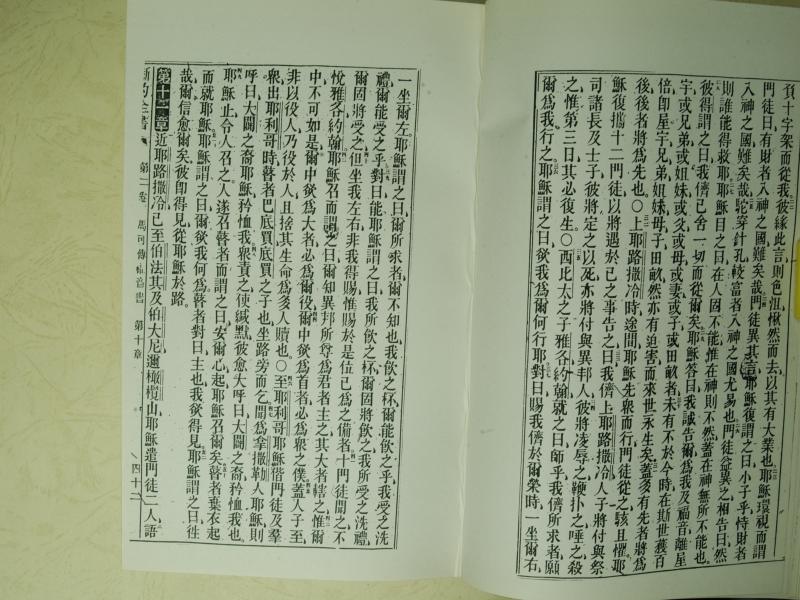 負十字架而從我彼緣此言則色沮愀然而去以其有大業也耶穌環視而謂
門徒曰有財者入神之國難矣哉門徒異其言耶穌復謂之曰小子乎恃財者
入神之國難矣哉駝穿針孔較富者入神之國尤易也門徒益異之相告曰然
則誰能得救耶耶穌目之曰在人固不能惟在神則不然蓋在神無所不能也
彼得謂之曰我儕已舍一切而從爾矣耶穌答曰我誠告爾爲我及福音離屋
宇或兄弟或姐妹或父或母或妻或子或田畝者未有不於今時在斯世獲百
倍卽屋宇兄弟姐妹母子田畝然亦有迫害而來世永生矣蓋多有先者將爲
後後者將爲先也○上耶路撒冷時途間耶穌先衆而行門徒從之駭且懼耶
穌復攜十二門徒以將遇於己之事告之曰我儕上耶路撒冷人子將付與祭
司諸長及士子彼將定之以死亦將付與異邦人彼將凌辱之鞭扑之唾之殺
之惟第三日其必復生○西比太之子雅各約翰就之曰師乎我儕所求者願
爾爲我行之耶穌謂之曰欲我爲爾何行耶對曰賜我儕於爾榮時一坐爾右
一坐爾左耶穌謂之曰爾所求者爾不知也我飲之杯爾能飲之乎我受之洗
禮爾能受之乎對曰能耶穌謂之曰我所飲之杯爾固將飲之我所受之洗禮
爾固將受之但坐我左右非我得賜惟賜於是位已爲之備者十門徒聞之不
悅雅各約翰耶穌召而謂之曰爾知異邦所尊爲君者主之其大者轄之惟爾
中不可如是爾中欲爲大者必爲爾役爾中欲爲首者必爲衆之僕蓋人子至
非以役人乃役於人且捨其生命爲多人贖也○至耶利哥耶穌偕門徒及羣
衆出耶利哥時瞽者巴底買底買之子也坐路旁而乞聞爲拿撒勒人耶穌則
呼曰大闢之裔耶穌矜恤我衆責之使緘默彼愈大呼曰大闢之裔矜恤我也
耶穌止令人召之人遂召瞽者而謂之曰安爾心起耶穌召爾矣瞽者葉衣起
而就耶穌耶穌謂之曰爾欲我何爲瞽者對曰主也我欲得見耶穌謂之曰往
哉爾信愈爾矣彼卽得見從耶穌於路
第十一章近耶路撒冷已至伯法其及伯大尼邇橄欖山耶穌遣門徒二人語
新約全書 第二卷 馬可傳福音書 第十章 四十二